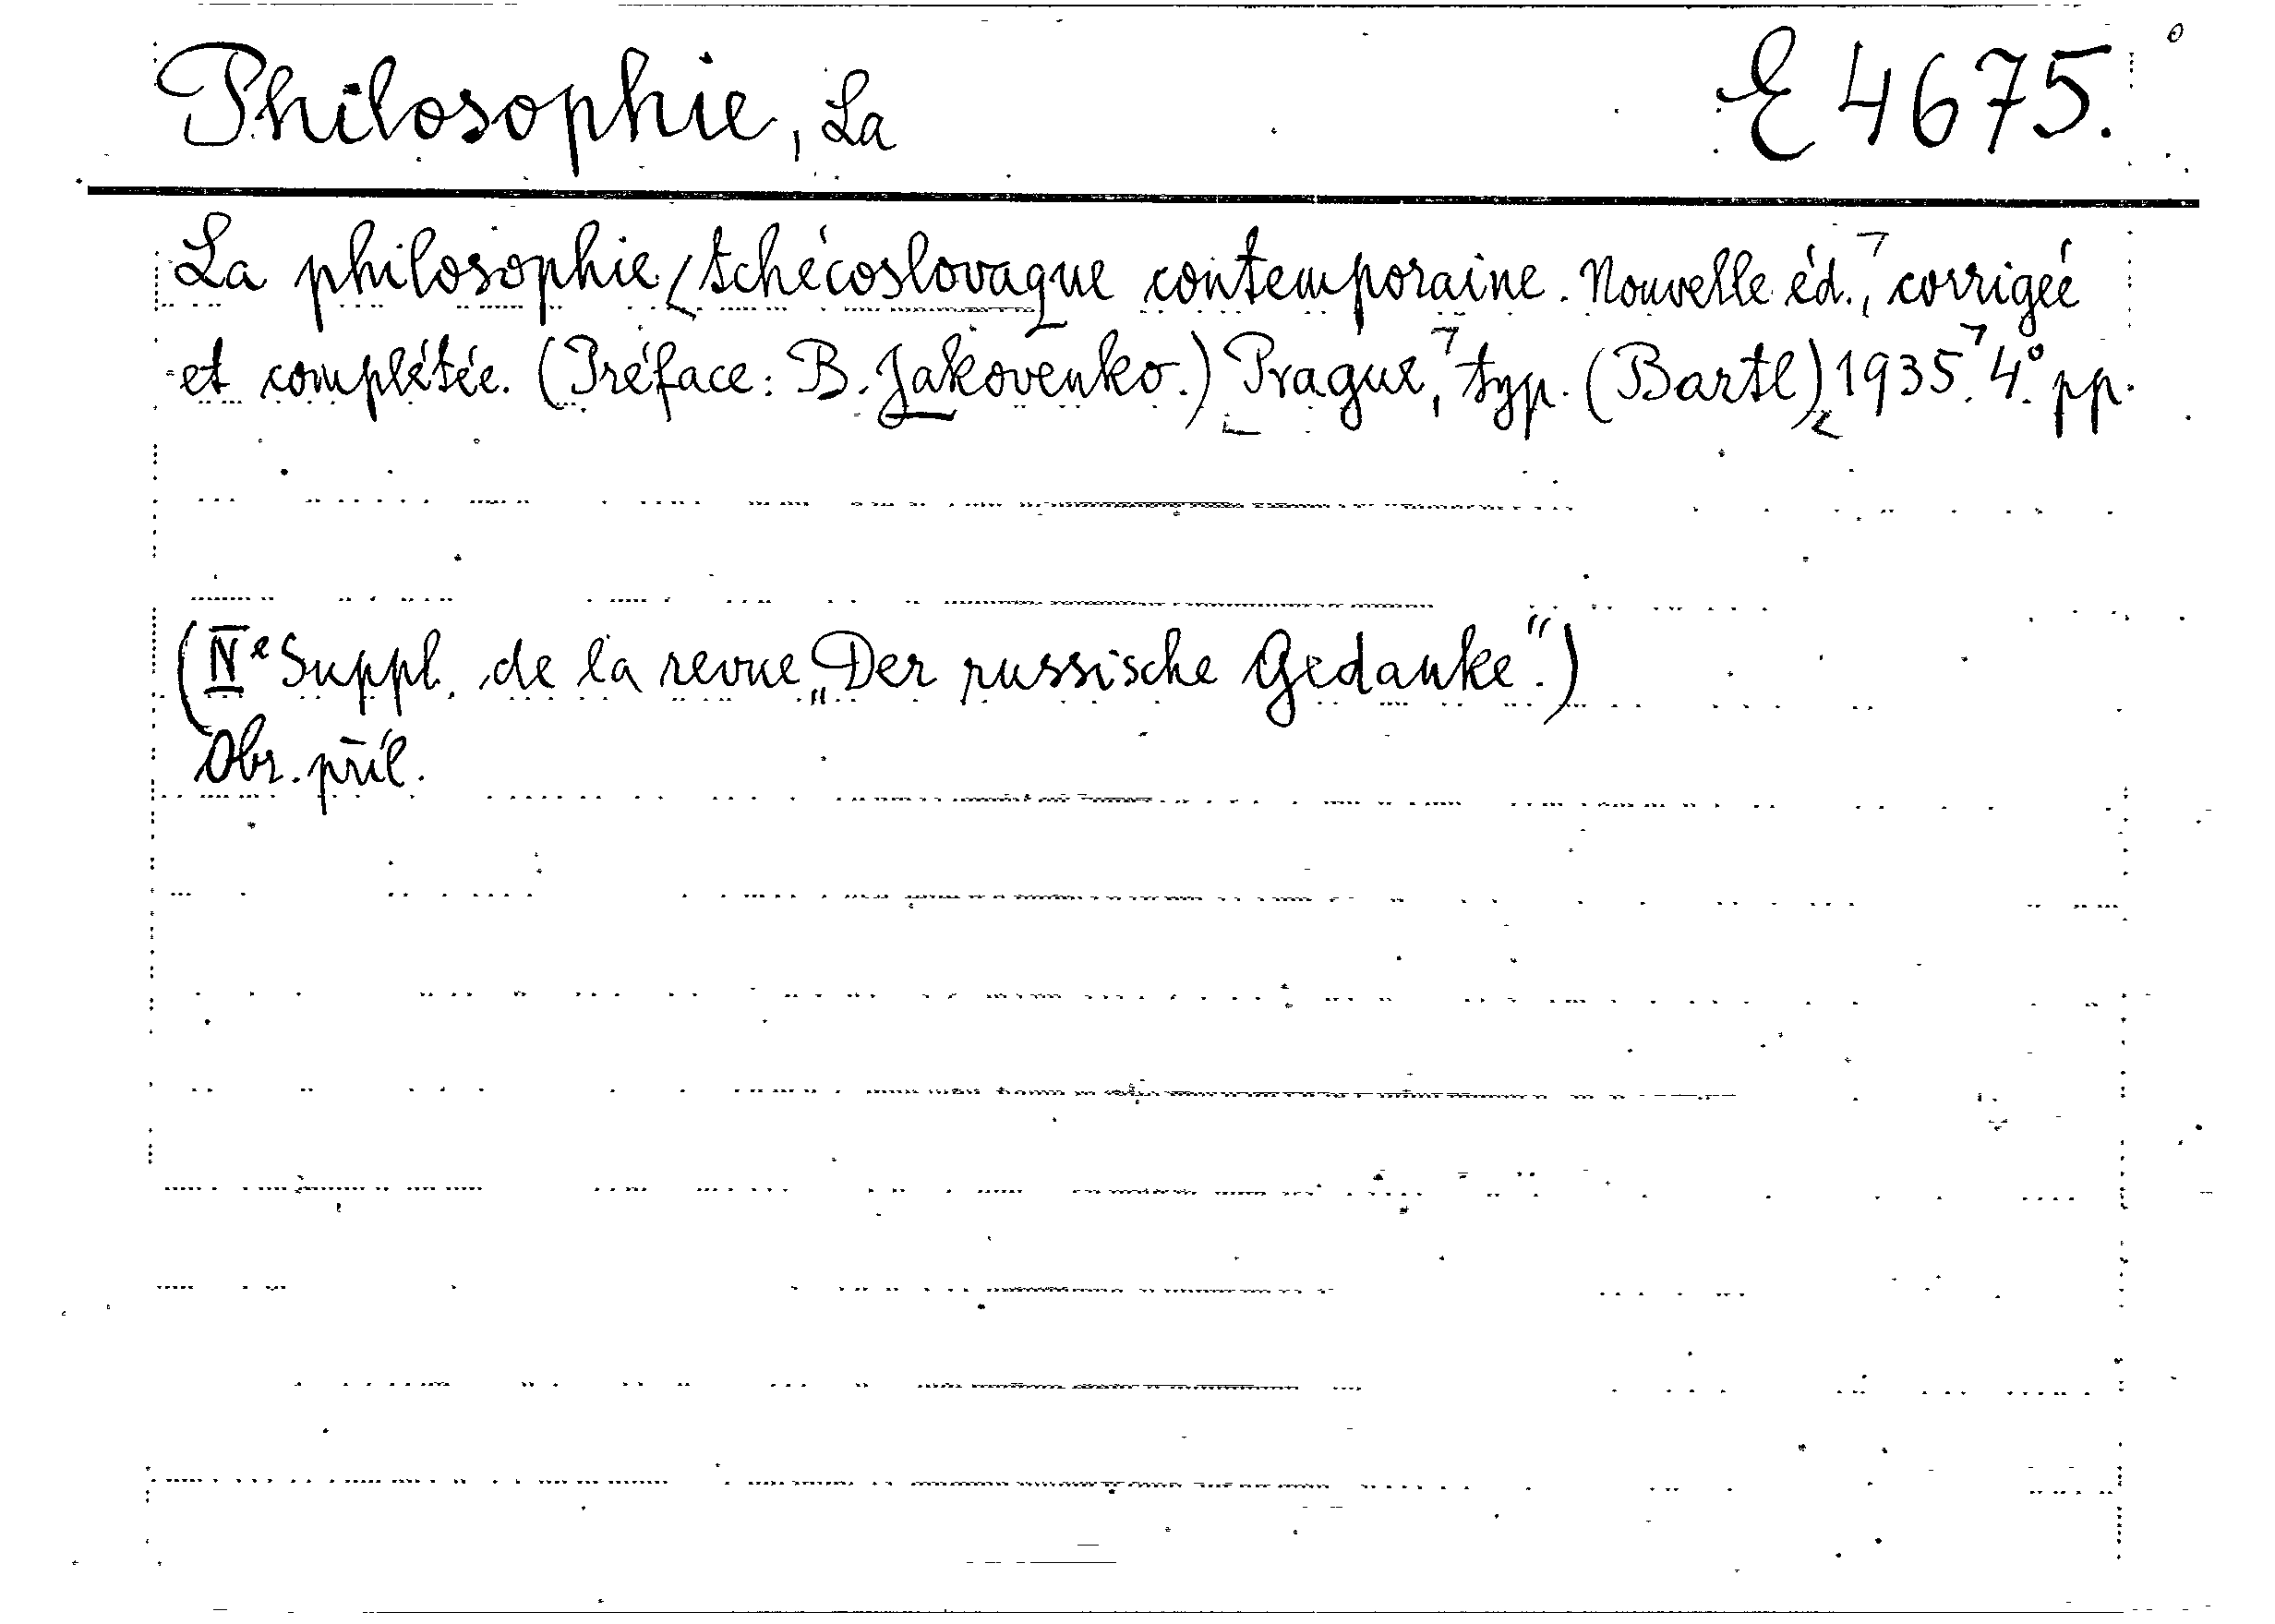 Philosophie, La E 4675.
La philosophie tchécoslovaque contemporaine. Nouvelle éd., corrigée
et complétée. (Préface: B. Jakovenko.) Prague, typ. (Bartl) 1935. 4° pp.
(IVe Suppl. de la revue „Der russische Gedanke".)
Obr. příl.